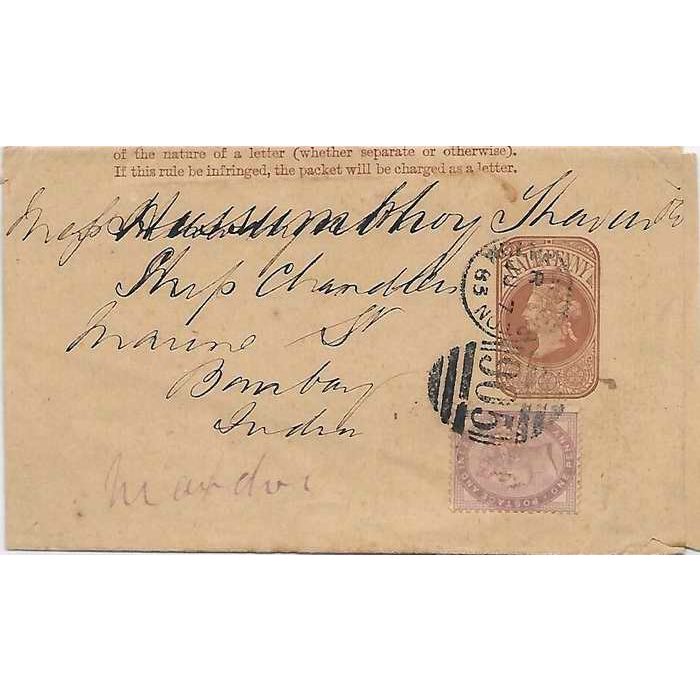 of the nature of a letter (whether separate or otherwise).
If this rule be infringed, the packet will be charged as a letter.
Mess Hussumbhoy
Ship Chandlers
Marine St
Bombay
India
HALFPENNY
83
905
POSTAGE AND